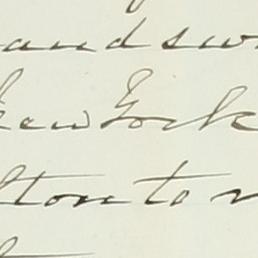 and sw
New York
lton to